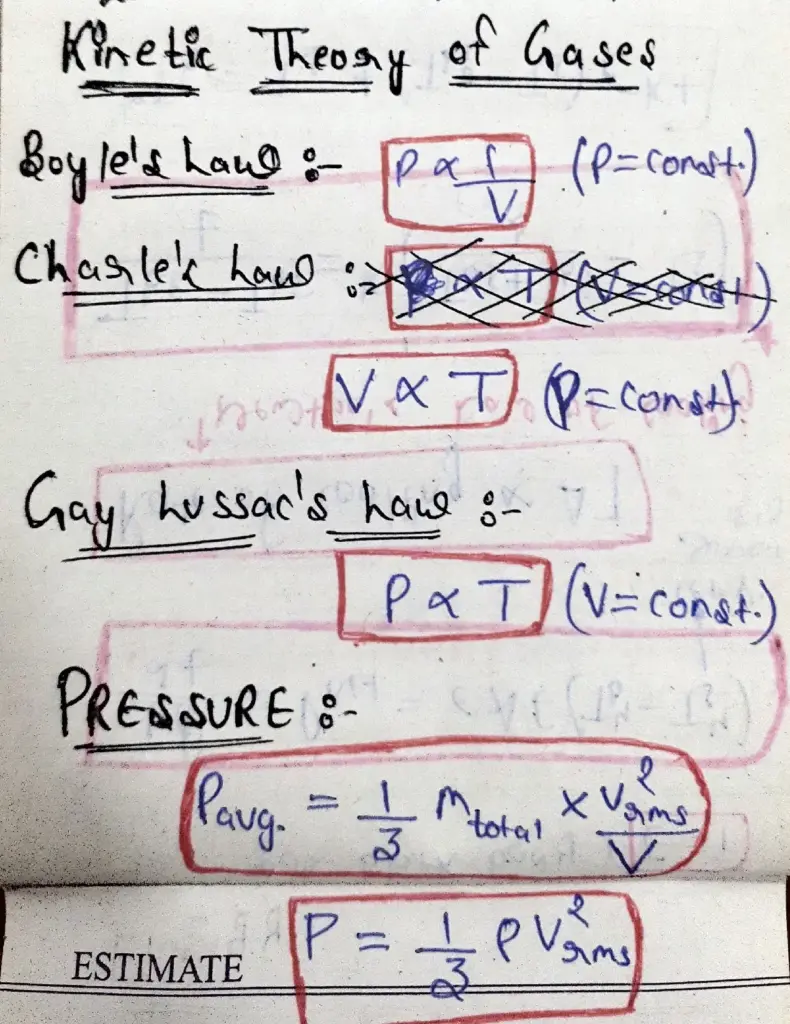 Kinetic Theory of Gases
Boyle's Law :- P ∝ 1/V (P=const.)
Charle's Law :-
V ∝ T (P=const).
Gay Lussac's Law :-
P ∝ T (V=const.)
PRESSURE :-
Pavg. = 1/3 Mtotal × V²rms/V
P = 1/3 ρ V²rms
ESTIMATE